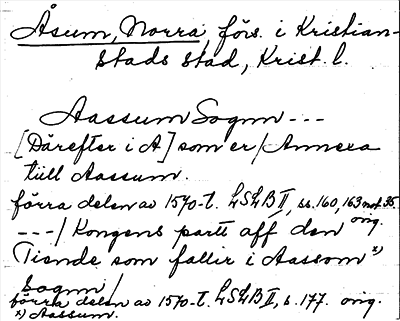 Åsum, Norra, förs. i Kristian-
stads stad, Krist. l.
Aassum Sognn ---
[Därefter i A] som er / Annexa
tiill Aassum.
förra delen av 1570-t. LSLB II, ss. 160, 163 not 35.
orig.
---/ Kongens partt aff den
Tiende som faller i Aassom x)
Sognn /
förra delen av 1570-t. LSLB II, s. 177. orig.
x) Aassum.